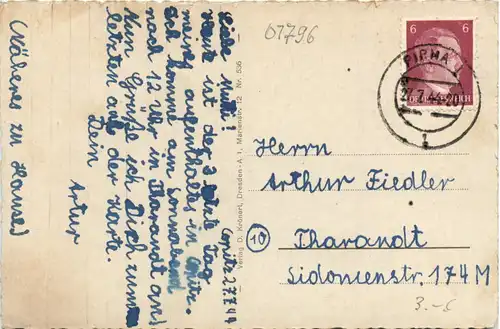 01796
Copitz 27.7.44
Liebe Mutti!
Heute ist der 3. letzte Tag
meines aufenthaltes in Copitz.
Ich komme am Sonnabend
nach 12 Uhr in Tharandt an!
Nun Grüße ich Dich zum
letzten auf der Karte.
Dein
Artur
(Näheres zu Hause)
Verlag D. Krönert, Dresden-A. 1, Marienstr. 12 Nr. 536
6 6
PIRNA
27.7.44-20
1
Herrn
Arthur Fiedler
(10) Tharandt
Sidonienstr. 174M
3.-